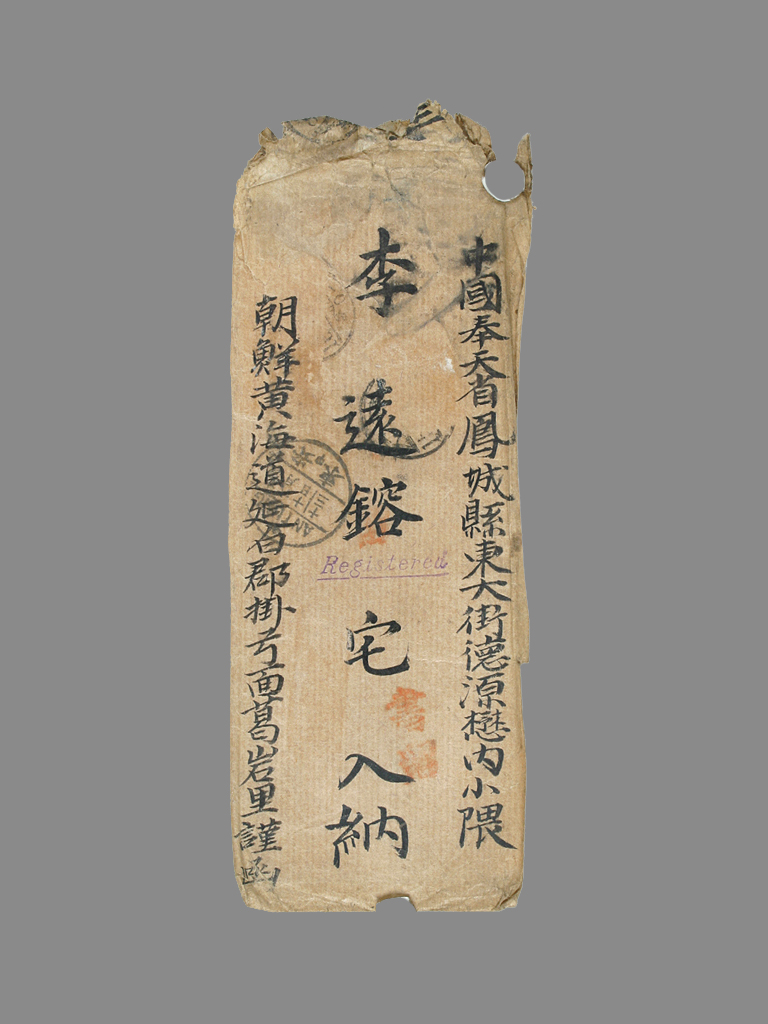 中國奉天省鳳城縣東大街德源懋内小隈
李遠鎔宅入納
Registered
書留
朝鮮黄海道延白郡掛弓面葛岩里謹函